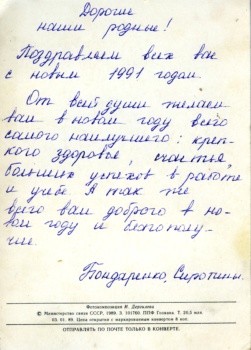 Дорогие
наши родные!
Поздравляем всех вас
с новым 1991 годом.
От всей души желаем
вам в новом году всего
самого наилучшего: креп-
кого здоровье, счастья,
больших успехов в работе
и учебе. А так же
всего вам доброго в но-
вом году и благополу-
чие.
Бондаренко, Сиротины.
Фотокомпозиция И. Дергилева
© Министерство связи СССР, 1989. З. 101760. ППФ Гознака. Т. 20,5 млн.
03. 01. 89. Цена открытки с маркированным конвертом 8 коп.
ОТПРАВЛЯТЬ ПО ПОЧТЕ ТОЛЬКО В КОНВЕРТЕ.